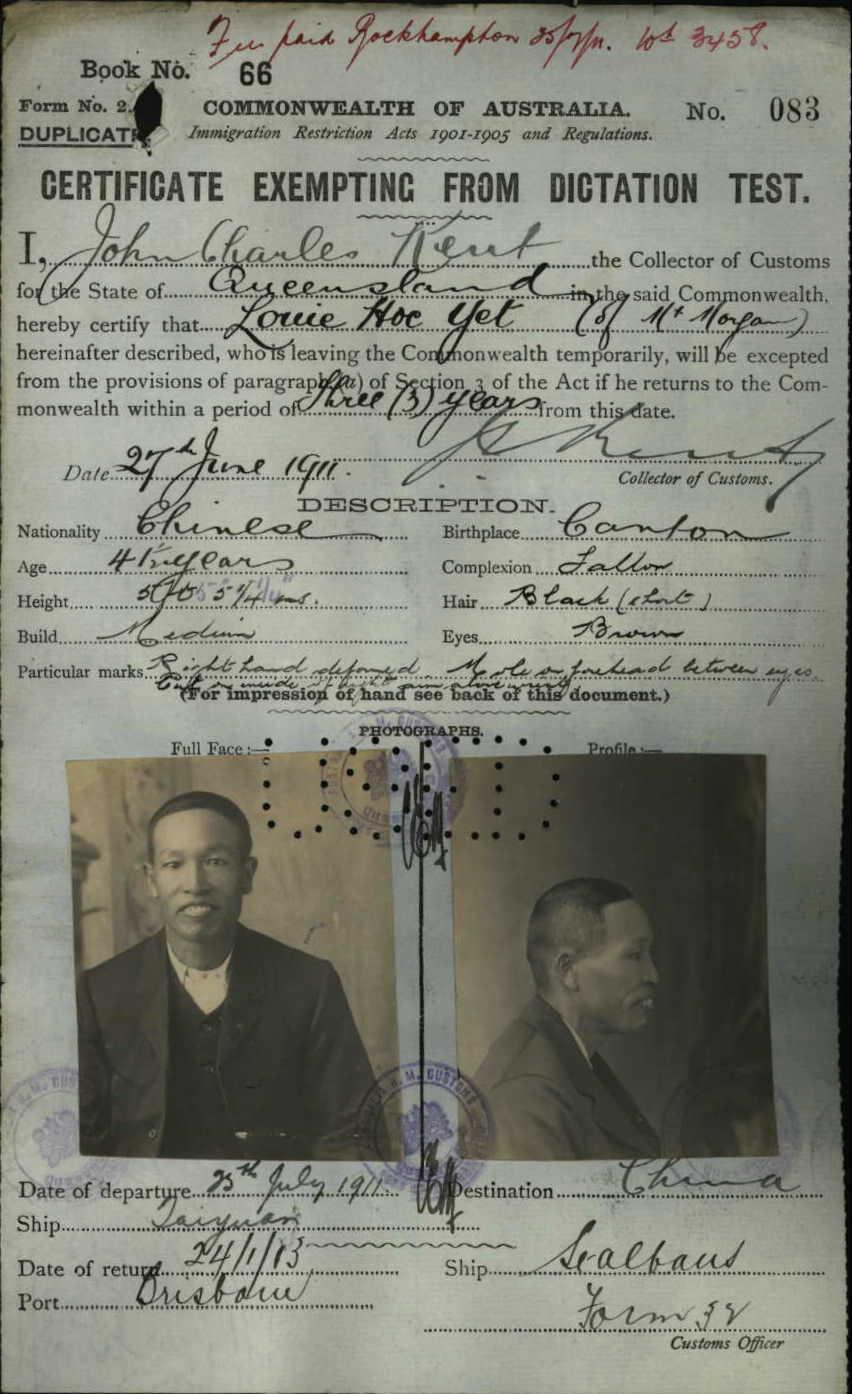 Fee paid Rockhampton 25/7/11. Wt 3458.
Book No. 66
Form No. 2.
COMMONWEALTH OF AUSTRALIA. No. 083
DUPLICATE
Immigration Restriction Acts 1901-1905 and Regulations.
CERTIFICATE EXEMPTING FROM DICTATION TEST.
I, John Charles Kent the Collector of Customs
for the State of Queensland in the said Commonwealth,
hereby certify that Louie Hoc Yet (of Mt Morgan)
hereinafter described, who is leaving the Commonwealth temporarily, will be excepted
from the provisions of paragraph (a) of Section 3 of the Act if he returns to the Com-
monwealth within a period of Three (3) years from this date.
Date 27th June 1911.
Collector of Customs.
DESCRIPTION.
Nationality Chinese Birthplace Canton
Age 41½ years Complexion Sallow
Height 5 ft 5¼ ins. Hair Black (short)
Build Medium Eyes Brown
Particular marks Right hand deformed. Mole on forehead between eyes.
Cut on inside of right arm above
(For impression of hand see back of this document.)
PHOTOGRAPHS.
Full Face :— Profile :—
H. M. CUSTOMS
Date of departure 25th July 1911. Destination China
Ship Taiyuan
Date of return 24/1/13 Ship St Albans
Port Brisbane
Form 32
Customs Officer